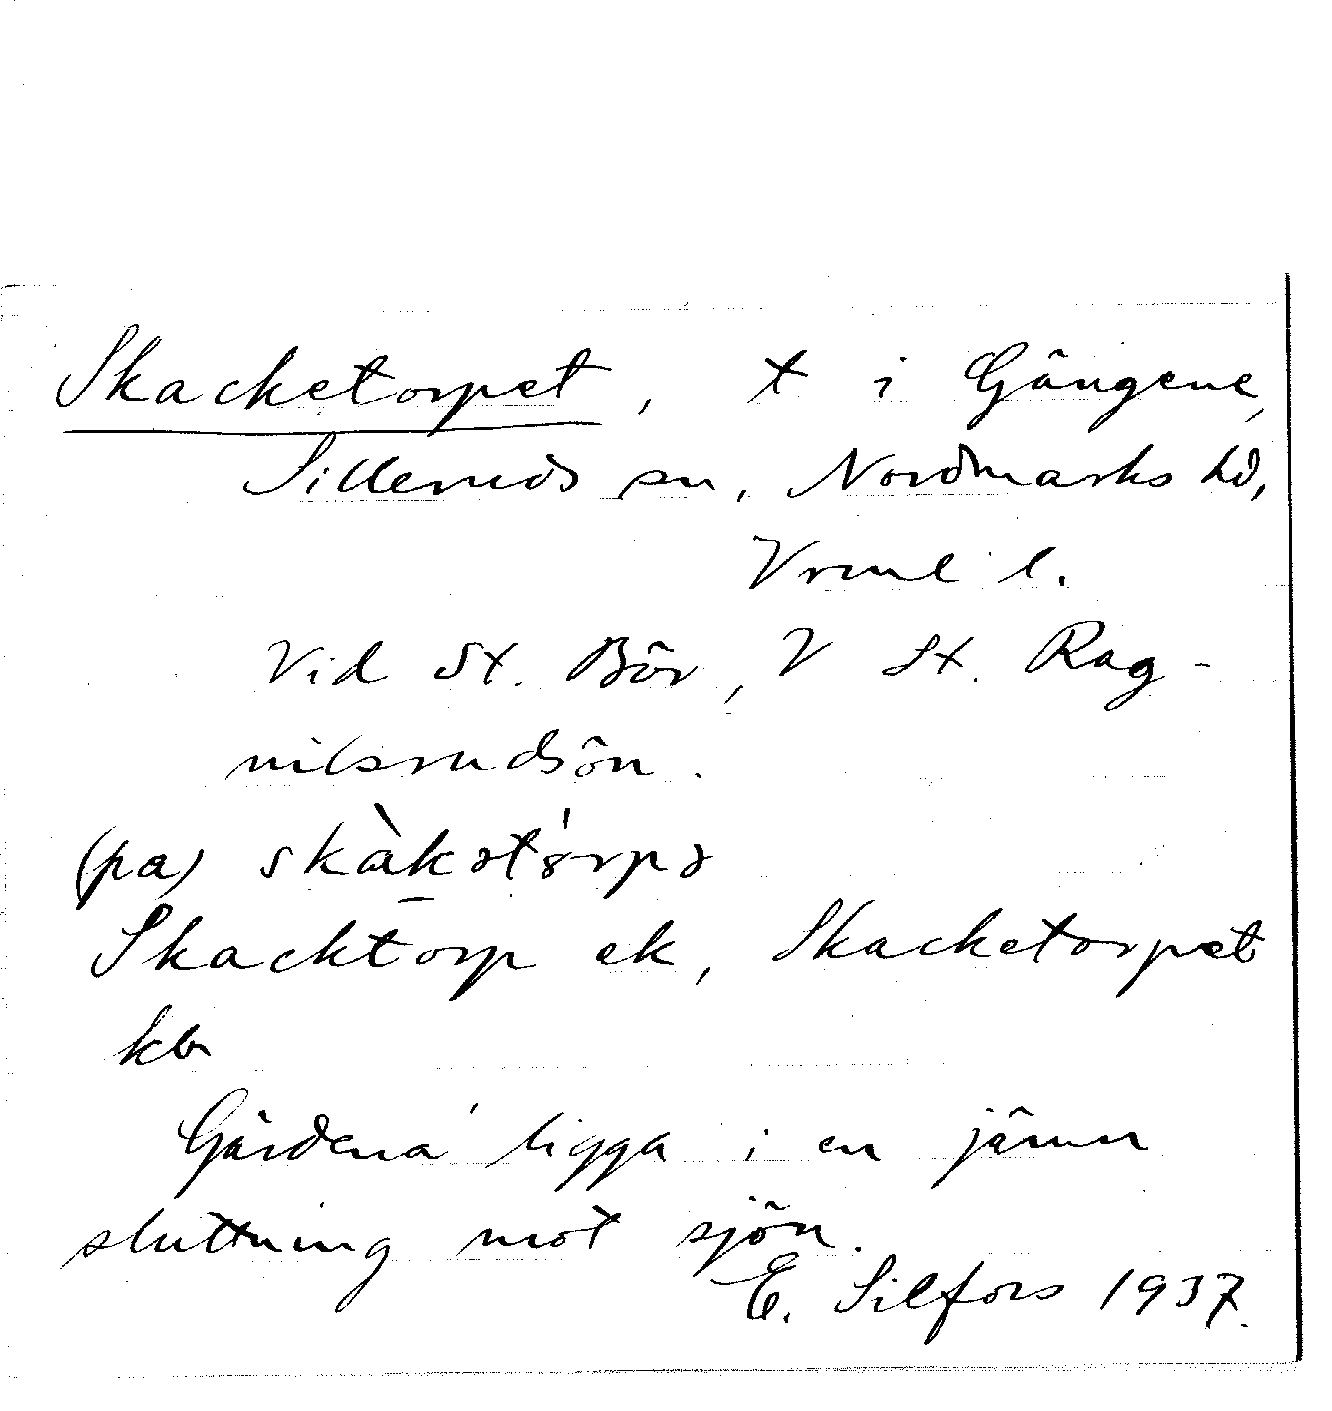 Skacketorpet, t i Gängene,
Silleruds sn, Nordmarks hd,
Vrml l.
Vid St. Bör, V St. Rag-
nilsrudsön.
(pa) skàkətɔ̍rpə
Skacktorp ek, Skacketorpet
kb
Gårdena ligga i en jämn
sluttning mot sjön.
E. Silfors 1937.